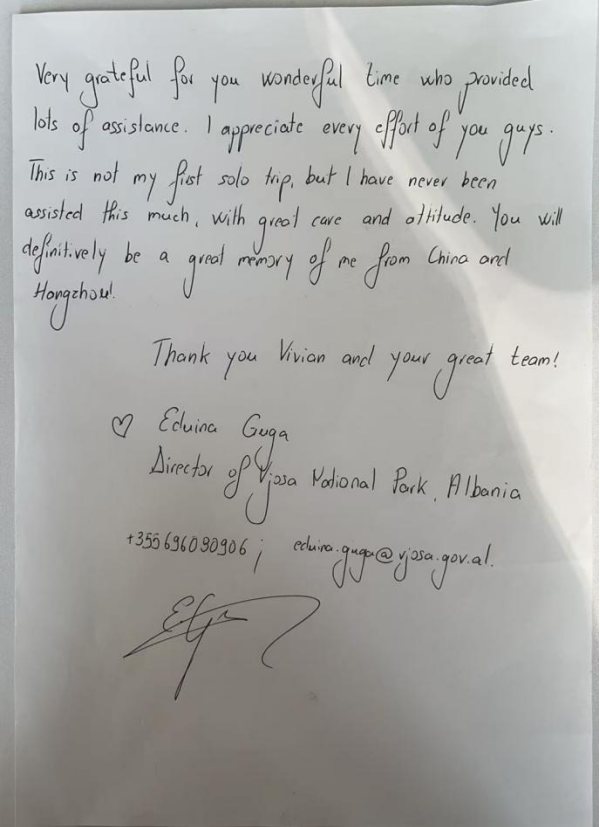 Very grateful for you wonderful time who provided
lots of assistance. I appreciate every effort of you guys.
This is not my first solo trip, but I have never been
assisted this much, with great care and attitude. You will
definitively be a great memory of me from China and
Hangzhou!
Thank you Vivian and your great team!
♡ Eduina Guga
Director of Vjosa National Park, Albania
+355 696090906 ; eduina.guga@vjosa.gov.al.